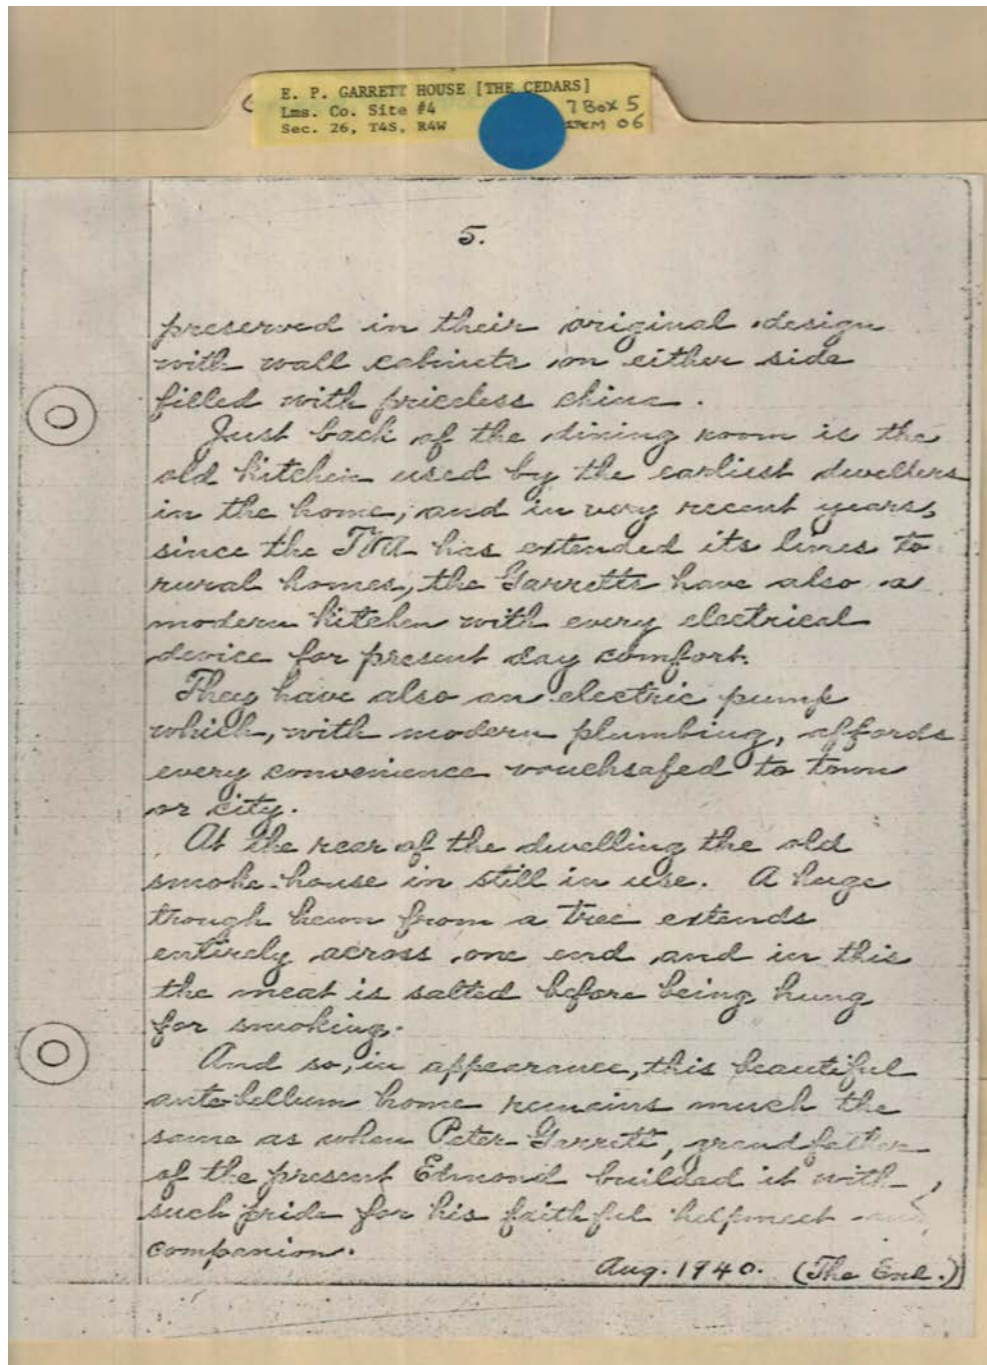 E. P. GARRETT HOUSE [THE CEDARS]
Lms. Co. Site #4 7 Box 5
Sec. 26, T4S, R4W ITEM 06
5.
preserved in their original design
with wall cabinets on either side
filled with priceless china.
Just back of the dining room is the
old kitchen used by the earliest dwellers
in the home, and in very recent years,
since the TVA has extended its lines to
rural homes, the Garretts have also a
modern kitchen with every electrical
device for present day comfort.
They have also an electric pump
which, with modern plumbing, affords
every convenience vouchsafed to town
or city.
At the rear of the dwelling the old
smoke-house in still in use. A huge
trough hewn from a tree extends
entirely across one end and in this
the meat is salted before being hung
for smoking.
And so, in appearance, this beautiful
antebellum home remains much the
same as when Peter Garrett, grandfather
of the present Edmond builded it with
such pride for his faithful helpmeet and
companion.
Aug. 1940. (The End.)